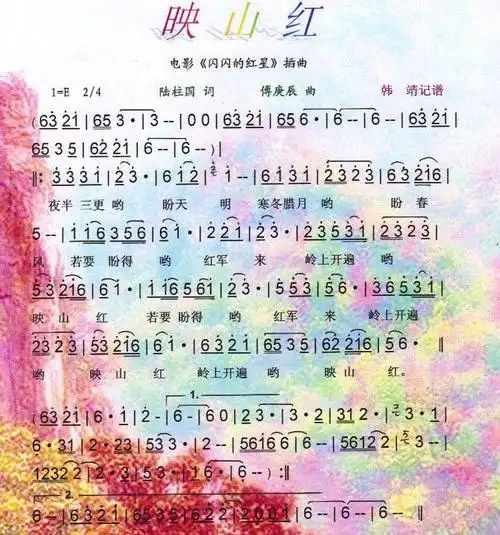 映山红
电影《闪闪的红星》插曲
1=E 2/4 陆柱国 词 傅庚辰 曲 韩 靖记谱
(63 21|65 3·|3--|00|63 21|65 356·|6--|6--|63 21|
65 35|62 21|6--|6--)|
‖:33 31|23·|61 2|2 1--|61 31|23 23|63 216|
夜半 三更 哟 盼天 明 寒冬腊月 哟 盼春
5--|11 635 6|61·|22 1|2·3|23 531|23 23|
风 若要 盼得 哟 红军 来 岭上开遍 哟
53 216|61·|11 6156|61·|216|23·|5535|36531|
映 山 红 若要 盼得 哟 红军 来 岭上开遍
23 23|53 216|61·|6123|5535|62 216|56·‖
哟 映 山 红 岭上开遍 哟 映 山 红。
1.
(63 21|6·1|2-|6-|60|23·|3·2|312·|3·1|
6·31|2·23|53·|2--|56166|6--|5612 2|3--|
1232 2|2·3|5·|16·|6--):‖
2.
6--|63 21|65 3·|2321|6--|6--|6--|